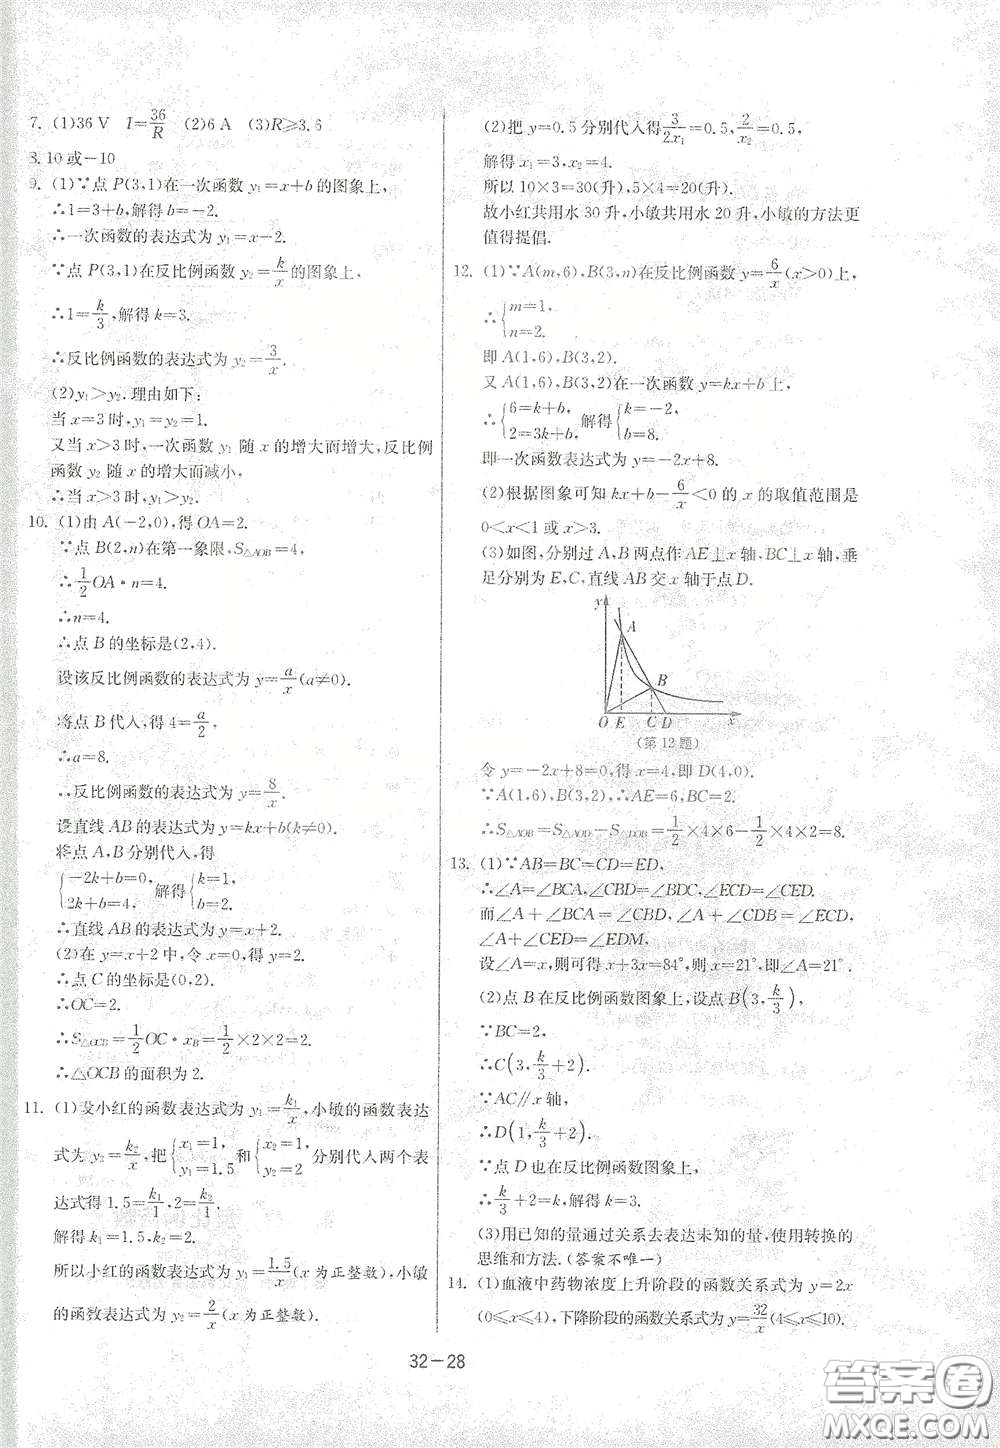 7. (1)36 V  I=36/R  (2)6 A  (3)R≥3.6
8. 10或-10
9. (1)∵点 P(3,1)在一次函数 y₁=x+b 的图象上,
∴1=3+b,解得 b=-2.
∴一次函数的表达式为 y₁=x-2.
∵点 P(3,1)在反比例函数 y₂=k/x 的图象上,
∴1=k/3,解得 k=3.
∴反比例函数的表达式为 y₂=3/x.
(2)y₁>y₂.理由如下:
当 x=3 时,y₁=y₂=1.
又当 x>3 时,一次函数 y₁ 随 x 的增大而增大,反比例
函数 y₂ 随 x 的增大而减小,
∴当 x>3 时,y₁>y₂.
10. (1)由 A(-2,0),得 OA=2.
∵点 B(2,n)在第一象限,S△AOB=4,
∴1/2 OA·n=4.
∴n=4.
∴点 B 的坐标是(2,4).
设该反比例函数的表达式为 y=a/x(a≠0).
将点 B 代入,得 4=a/2,
∴a=8.
∴反比例函数的表达式为 y=8/x.
设直线 AB 的表达式为 y=kx+b(k≠0).
将点 A,B 分别代入,得
{-2k+b=0, 2k+b=4, 解得{k=1, b=2.
∴直线 AB 的表达式为 y=x+2.
(2)在 y=x+2 中,令 x=0,得 y=2.
∴点 C 的坐标是(0,2).
∴OC=2.
∴S△OCB=1/2 OC·x_B=1/2×2×2=2.
∴△OCB 的面积为 2.
11. (1)设小红的函数表达式为 y₁=k₁/x,小敏的函数表达
式为 y₂=k₂/x,把{x₁=1, y₁=1.5 和{x₂=1, y₂=2 分别代入两个表
达式得 1.5=k₁/1,2=k₂/1.
解得 k₁=1.5,k₂=2.
所以小红的函数表达式为 y₁=1.5/x(x 为正整数),小敏
的函数表达式为 y₂=2/x(x 为正整数).
(2)把 y=0.5 分别代入得 3/2x₁=0.5,2/x₂=0.5,
解得 x₁=3,x₂=4.
所以 10×3=30(升),5×4=20(升).
故小红共用水 30 升,小敏共用水 20 升,小敏的方法更
值得提倡.
12. (1)∵A(m,6),B(3,n)在反比例函数 y=6/x(x>0)上,
∴{m=1, n=2.
即 A(1,6),B(3,2).
又 A(1,6),B(3,2)在一次函数 y=kx+b 上,
∴{6=k+b, 2=3k+b, 解得{k=-2, b=8.
即一次函数表达式为 y=-2x+8.
(2)根据图象可知 kx+b-6/x<0 的 x 的取值范围是
0<x<1 或 x>3.
(3)如图,分别过 A,B 两点作 AE⊥x 轴,BC⊥x 轴,垂
足分别为 E,C,直线 AB 交 x 轴于点 D.
y
A
B
O E C D x
(第12题)
令 y=-2x+8=0,得 x=4,即 D(4,0).
∵A(1,6),B(3,2),∴AE=6,BC=2.
∴S△AOB=S△AOD-S△DOB=1/2×4×6-1/2×4×2=8.
13. (1)∵AB=BC=CD=ED,
∴∠A=∠BCA,∠CBD=∠BDC,∠ECD=∠CED.
而∠A+∠BCA=∠CBD,∠A+∠CDB=∠ECD,
∠A+∠CED=∠EDM,
设∠A=x,则可得 x+3x=84°,则 x=21°,即∠A=21°.
(2)点 B 在反比例函数图象上,设点 B(3,k/3),
∵BC=2,
∴C(3,k/3+2).
∵AC∥x 轴,
∴D(1,k/3+2).
∵点 D 也在反比例函数图象上,
∴k/3+2=k,解得 k=3.
(3)用已知的量通过关系去表达未知的量,使用转换的
思维和方法.(答案不唯一)
14. (1)血液中药物浓度上升阶段的函数关系式为 y=2x
(0≤x≤4),下降阶段的函数关系式为 y=32/x(4≤x≤10).
32-28
答案圈
MXQE.COM